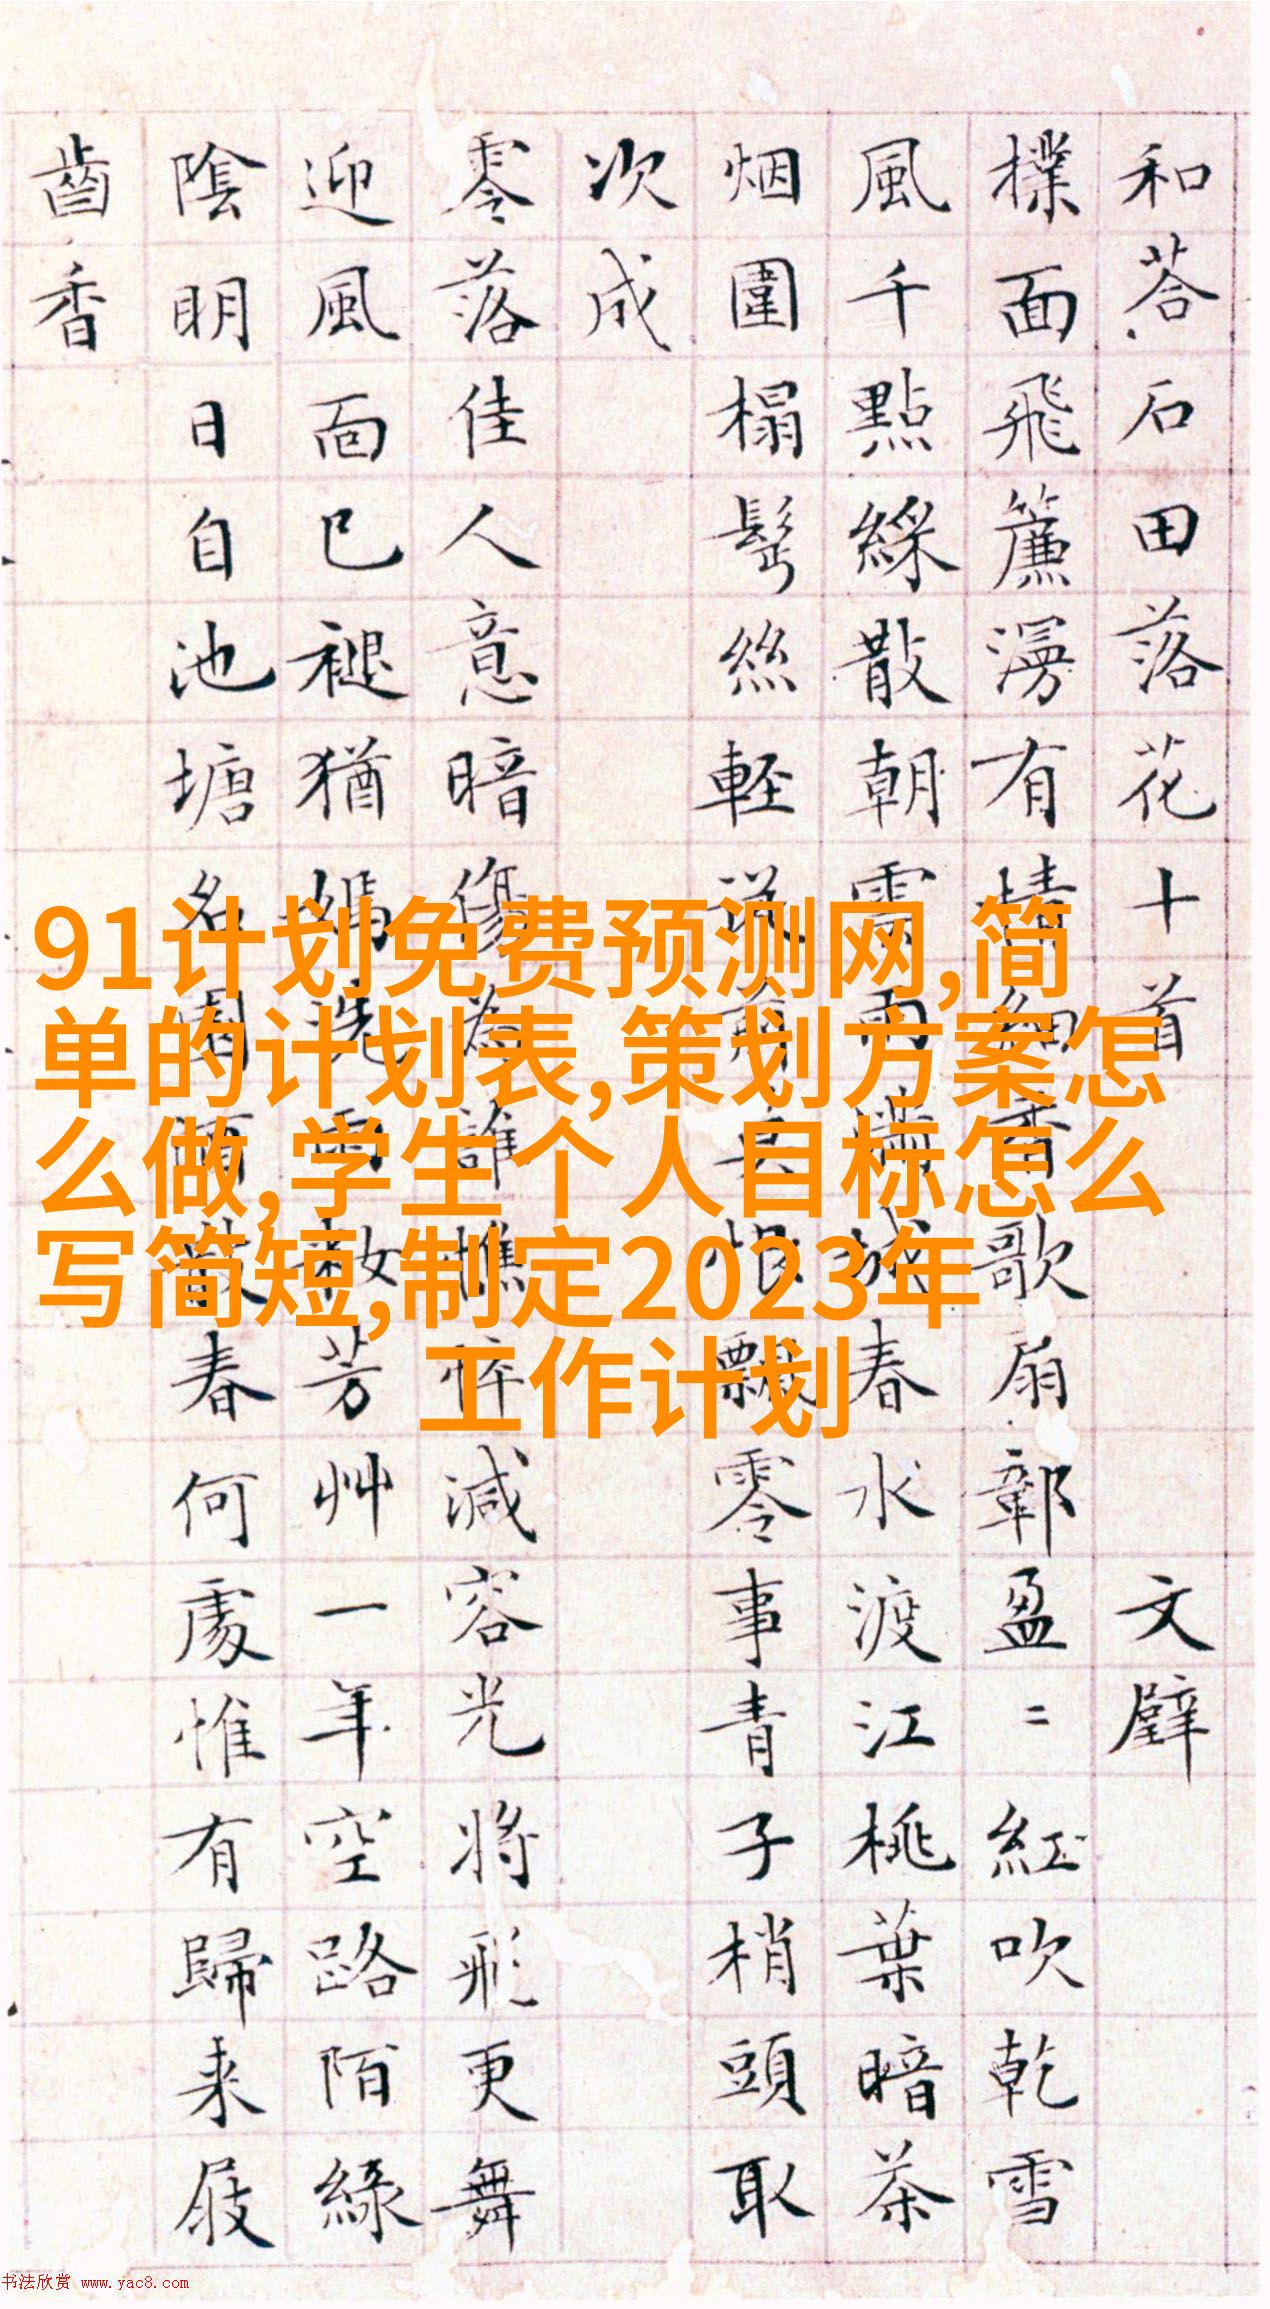 和荅石田落花十首 文璧
撲面飛簾漫有情細香歌扇鄣盈〻紅吹乾雪
風千點綵散朝雲雨滿城春水渡江桃葉暗茶
烟圍榻髩絲輕從前莫恨飄零事青子梢頭取
次成
零落佳人意暗傷為誰憔悴減容光將飛更舞
迎風面已褪猶嫣洗雨妝芳艸一年空路陌綠
陰明日自池塘名園酒散春何處惟有歸来屐
齒香
91计划免费预测网,简
单的计划表,策划方案怎
么做,学生个人目标怎么
写简短,制定2023年
工作计划
书法欣赏 www.yac8.com